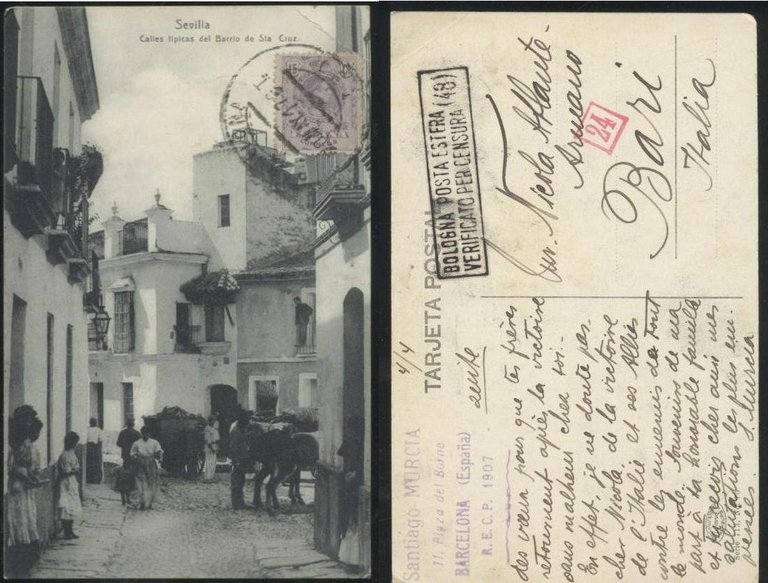 Sevilla
Calles típicas del Barrio de Sta Cruz.
15
TARJETA POSTAL
BOLOGNA POSTA ESTERA
VERIFICATO PER CENSURA (48)
24
Nicola
Armeno
Bari
Italia
Santiago MURCIA
11, Plaza del Borne
BARCELONA (España)
R.E.C.P. 1907
4/4
suite
des vœux pour que tes frères
retournent après la victoire
sans malheur chez toi.-
En effet, je ne doute pas
cher Nicola, de la victoire
de l'Italie et ses Alliés
contre les ennemis de tout
le monde. Souvenirs de ma
part à ta honorable famille
et reçois cher ami mes
salutations les plus em-
S. Murcia